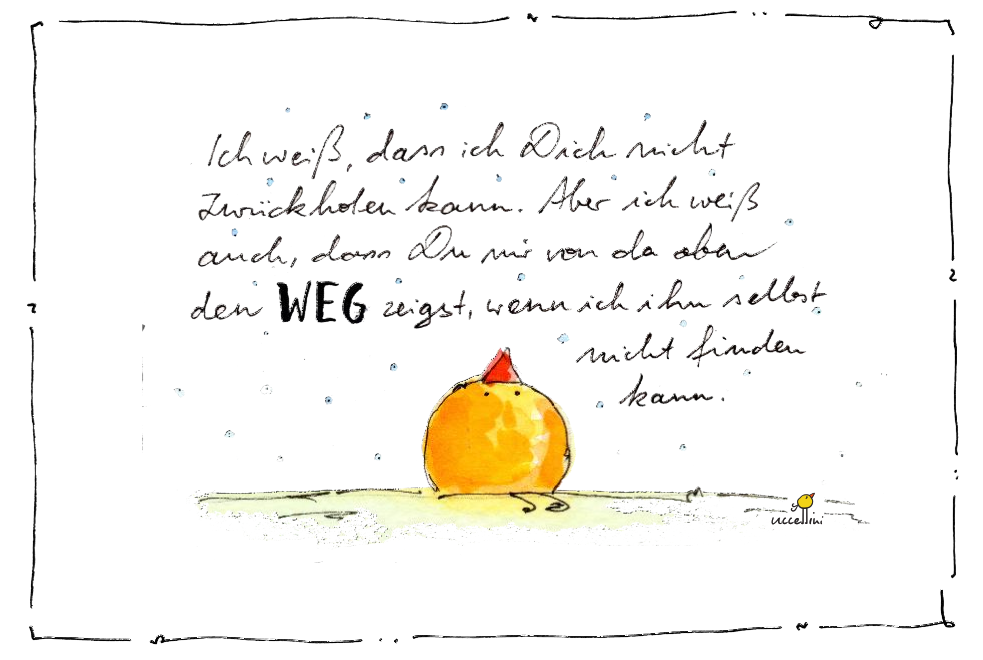 Ich weiß, dass ich Dich nicht
zurückholen kann. Aber ich weiß
auch, dass Du mir von da oben
den WEG zeigst, wenn ich ihn selbst
nicht finden
kann.
uccellini